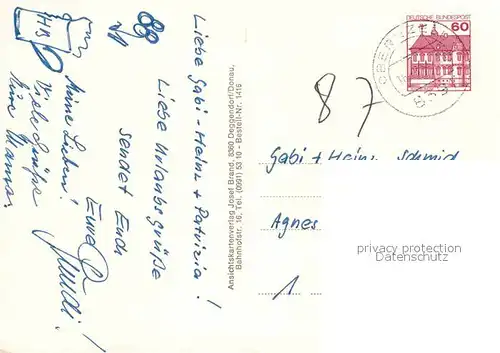 Liebe Gabi - Heinz + Patrizia!
Liebe Urlaubsgrüße
sendet Euch
Eure
Meine Lieben!
Viele Grüße
Eure Mama
HB
87
Ansichtskartenverlag Josef Brand, 8360 Deggendorf/Donau,
Bahnhofstr. 16, Tel. (0991) 53 10 - Bestell-Nr. 1416
DEUTSCHE BUNDESPOST
60
Gabi + Heinz Schmid
Agnes
1
privacy protection
Datenschutz